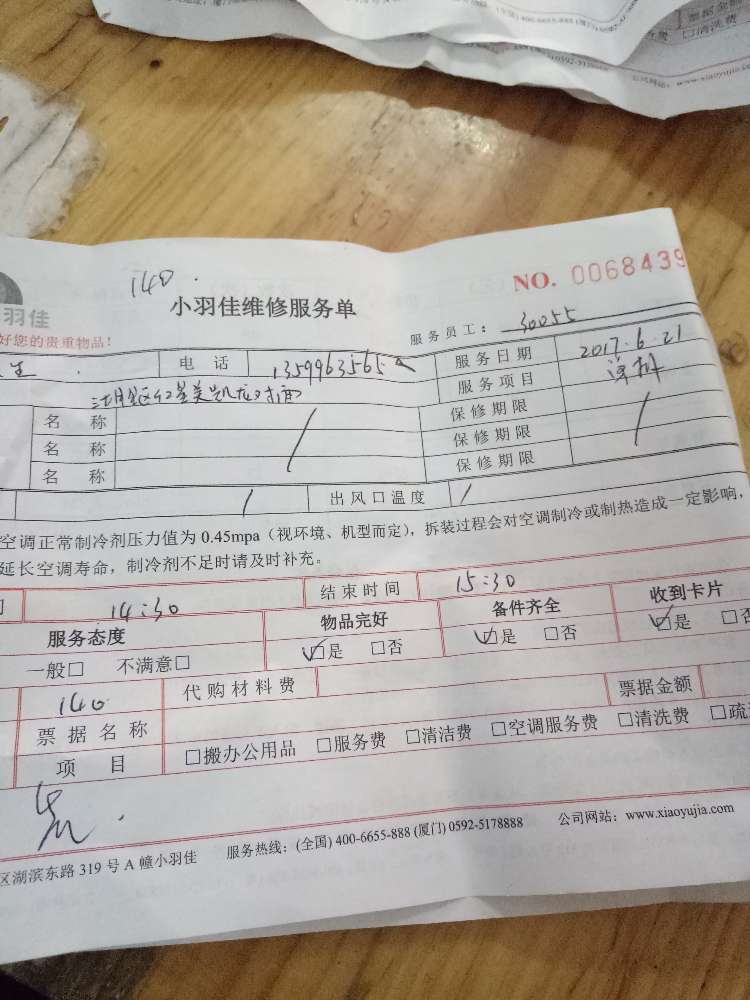 票据金额
□清洗费
(全国) 400-6655-888 (厦门)
0592-5178888
公司网站: www.xiaoyujia.com
140.
NO. 0068439
羽佳
小羽佳维修服务单
好您的贵重物品!
服务员工: 30055
生. 电 话 服务日期 2017.6.21
红星美凯龙对面 服务项目
名 称 / 保修期限 /
名 称 保修期限
名 称 保修期限
/ 出风口温度 /
空调正常制冷剂压力值为 0.45mpa (视环境、机型而定), 拆装过程会对空调制冷或制热造成一定影响,
延长空调寿命, 制冷剂不足时请及时补充。
14:30 结束时间 15:30
服务态度 物品完好 备件齐全 收到卡片
一般□ 不满意□ ☑是 □否 ☑是 □否 ☑是 □否
140 代购材料费 票据金额
票据名称
项 目 □搬办公用品 □服务费 □清洁费 □空调服务费 □清洗费 □疏
区湖滨东路 319 号 A 幢小羽佳 服务热线: (全国) 400-6655-888 (厦门) 0592-5178888 公司网站: www.xiaoyujia.com